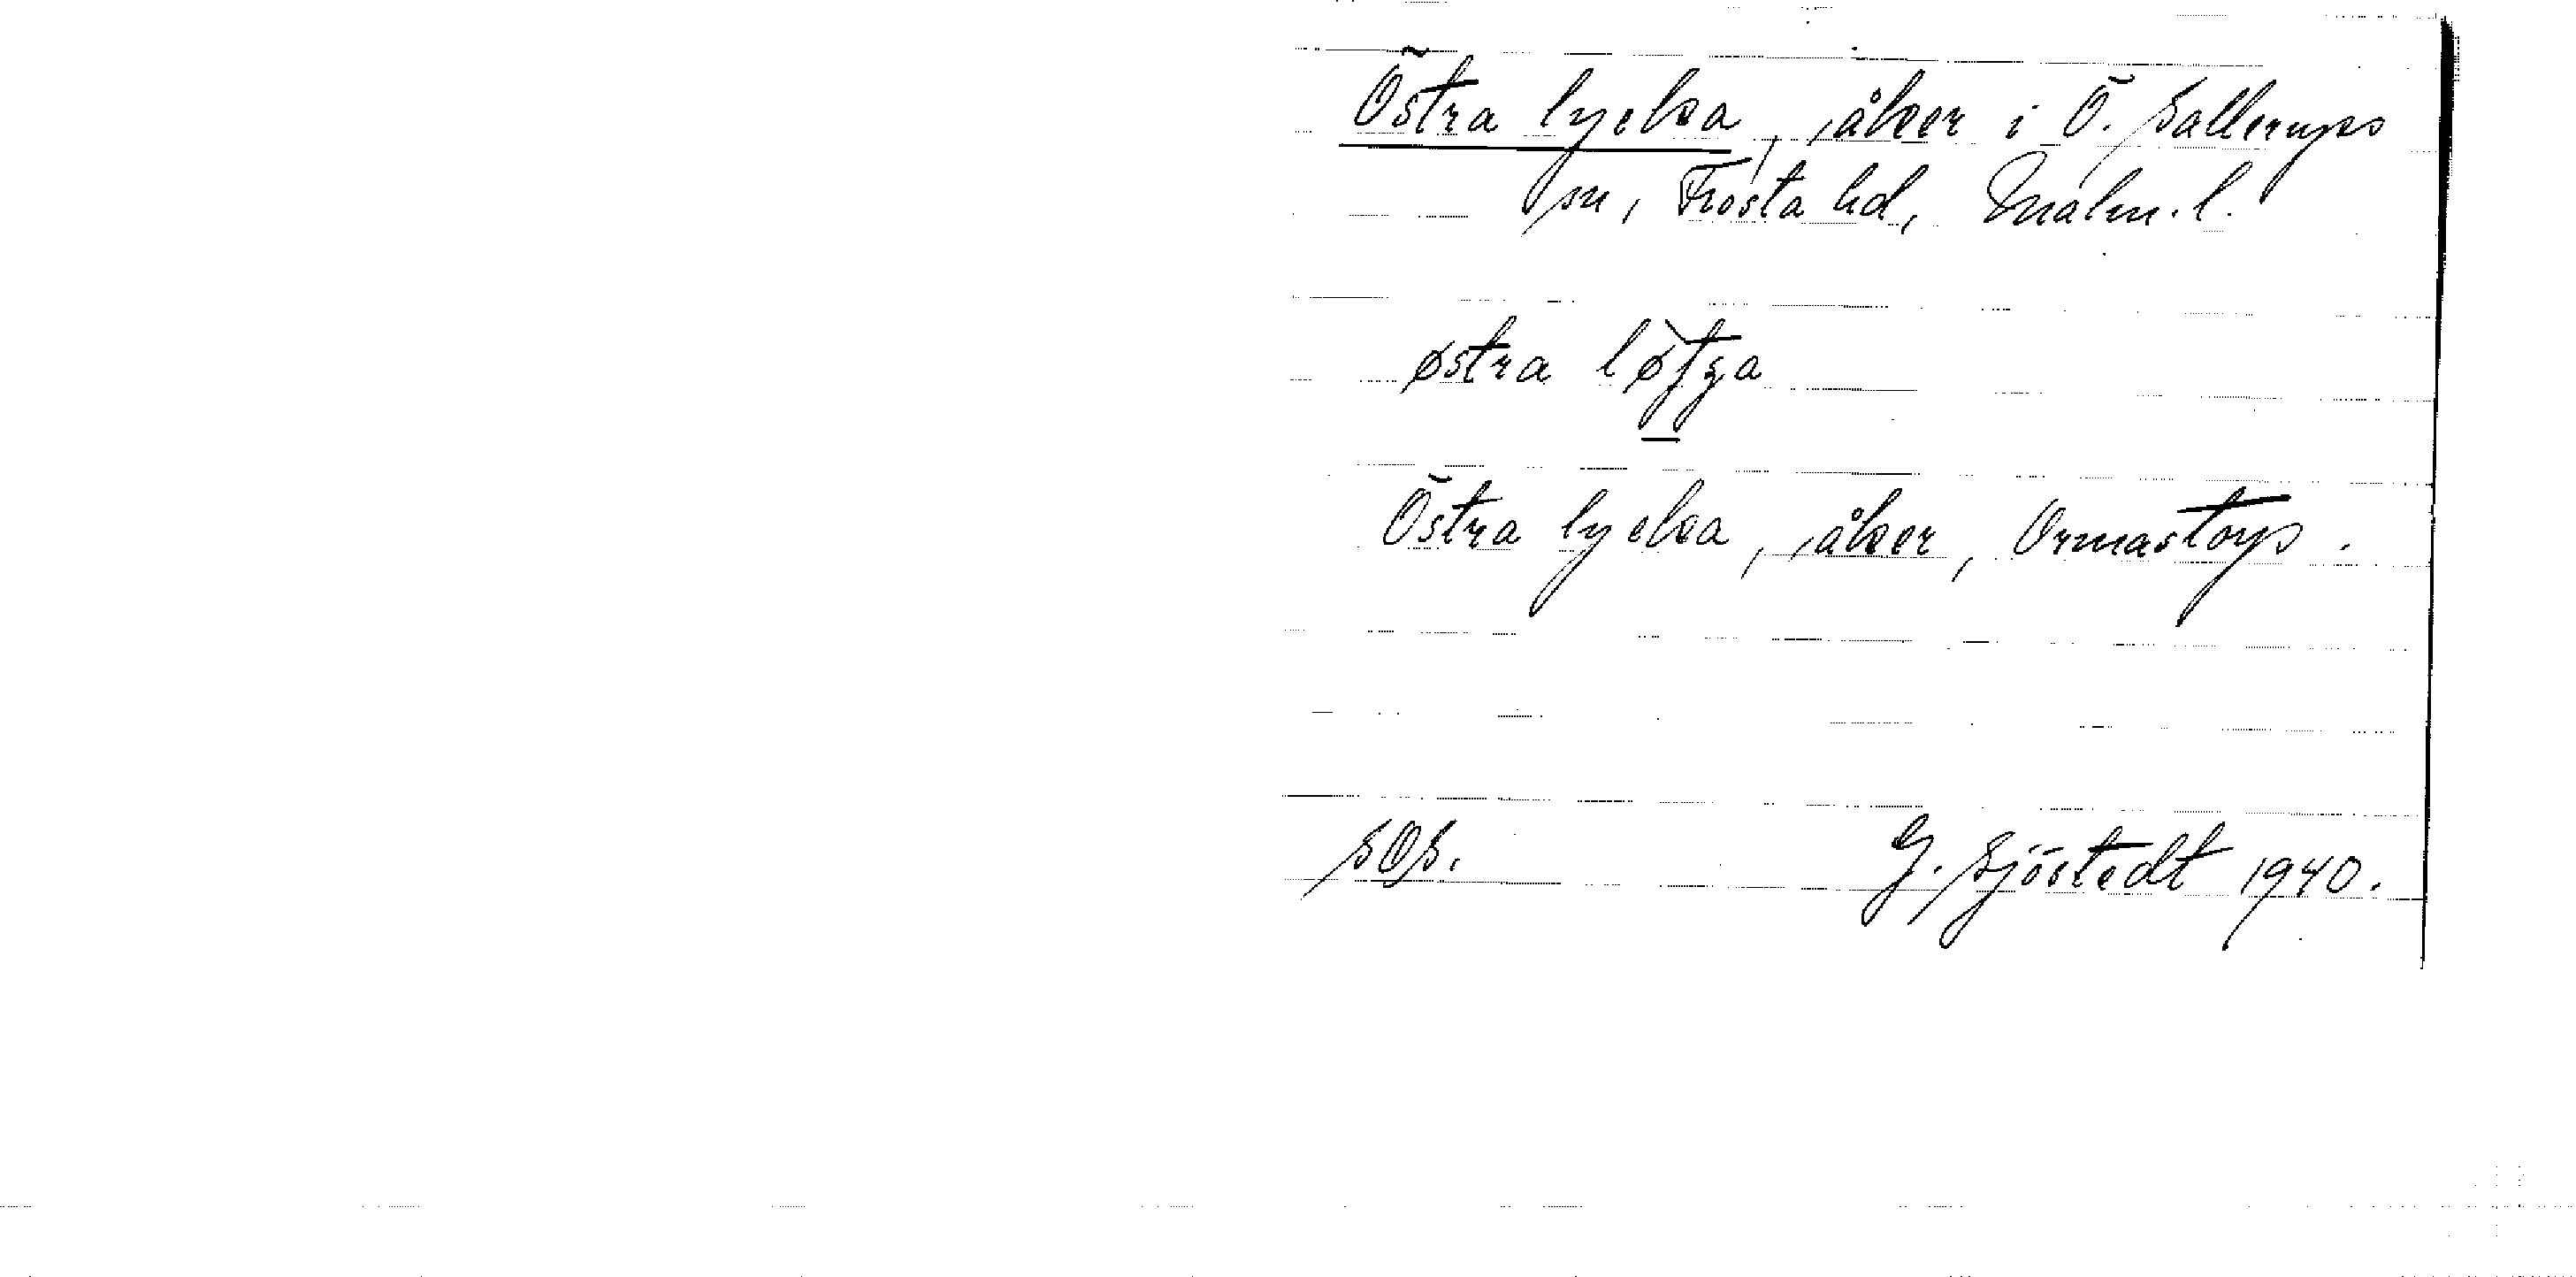 Östra lycka, åker i Ö. Sallerups
sn, Frosta hd, Malm. l.
østra
Östra lycka, åker, Ormastorp.
SOS. G. Sjöstedt 1940.